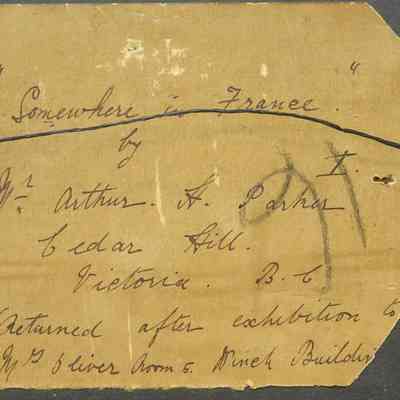 "Somewhere in France."
by
I.
Mr Arthur. H. Parker
Cedar Hill.
Victoria. B.C
(Returned after exhibition to
Mrs Oliver Room 5. Winch Buildin